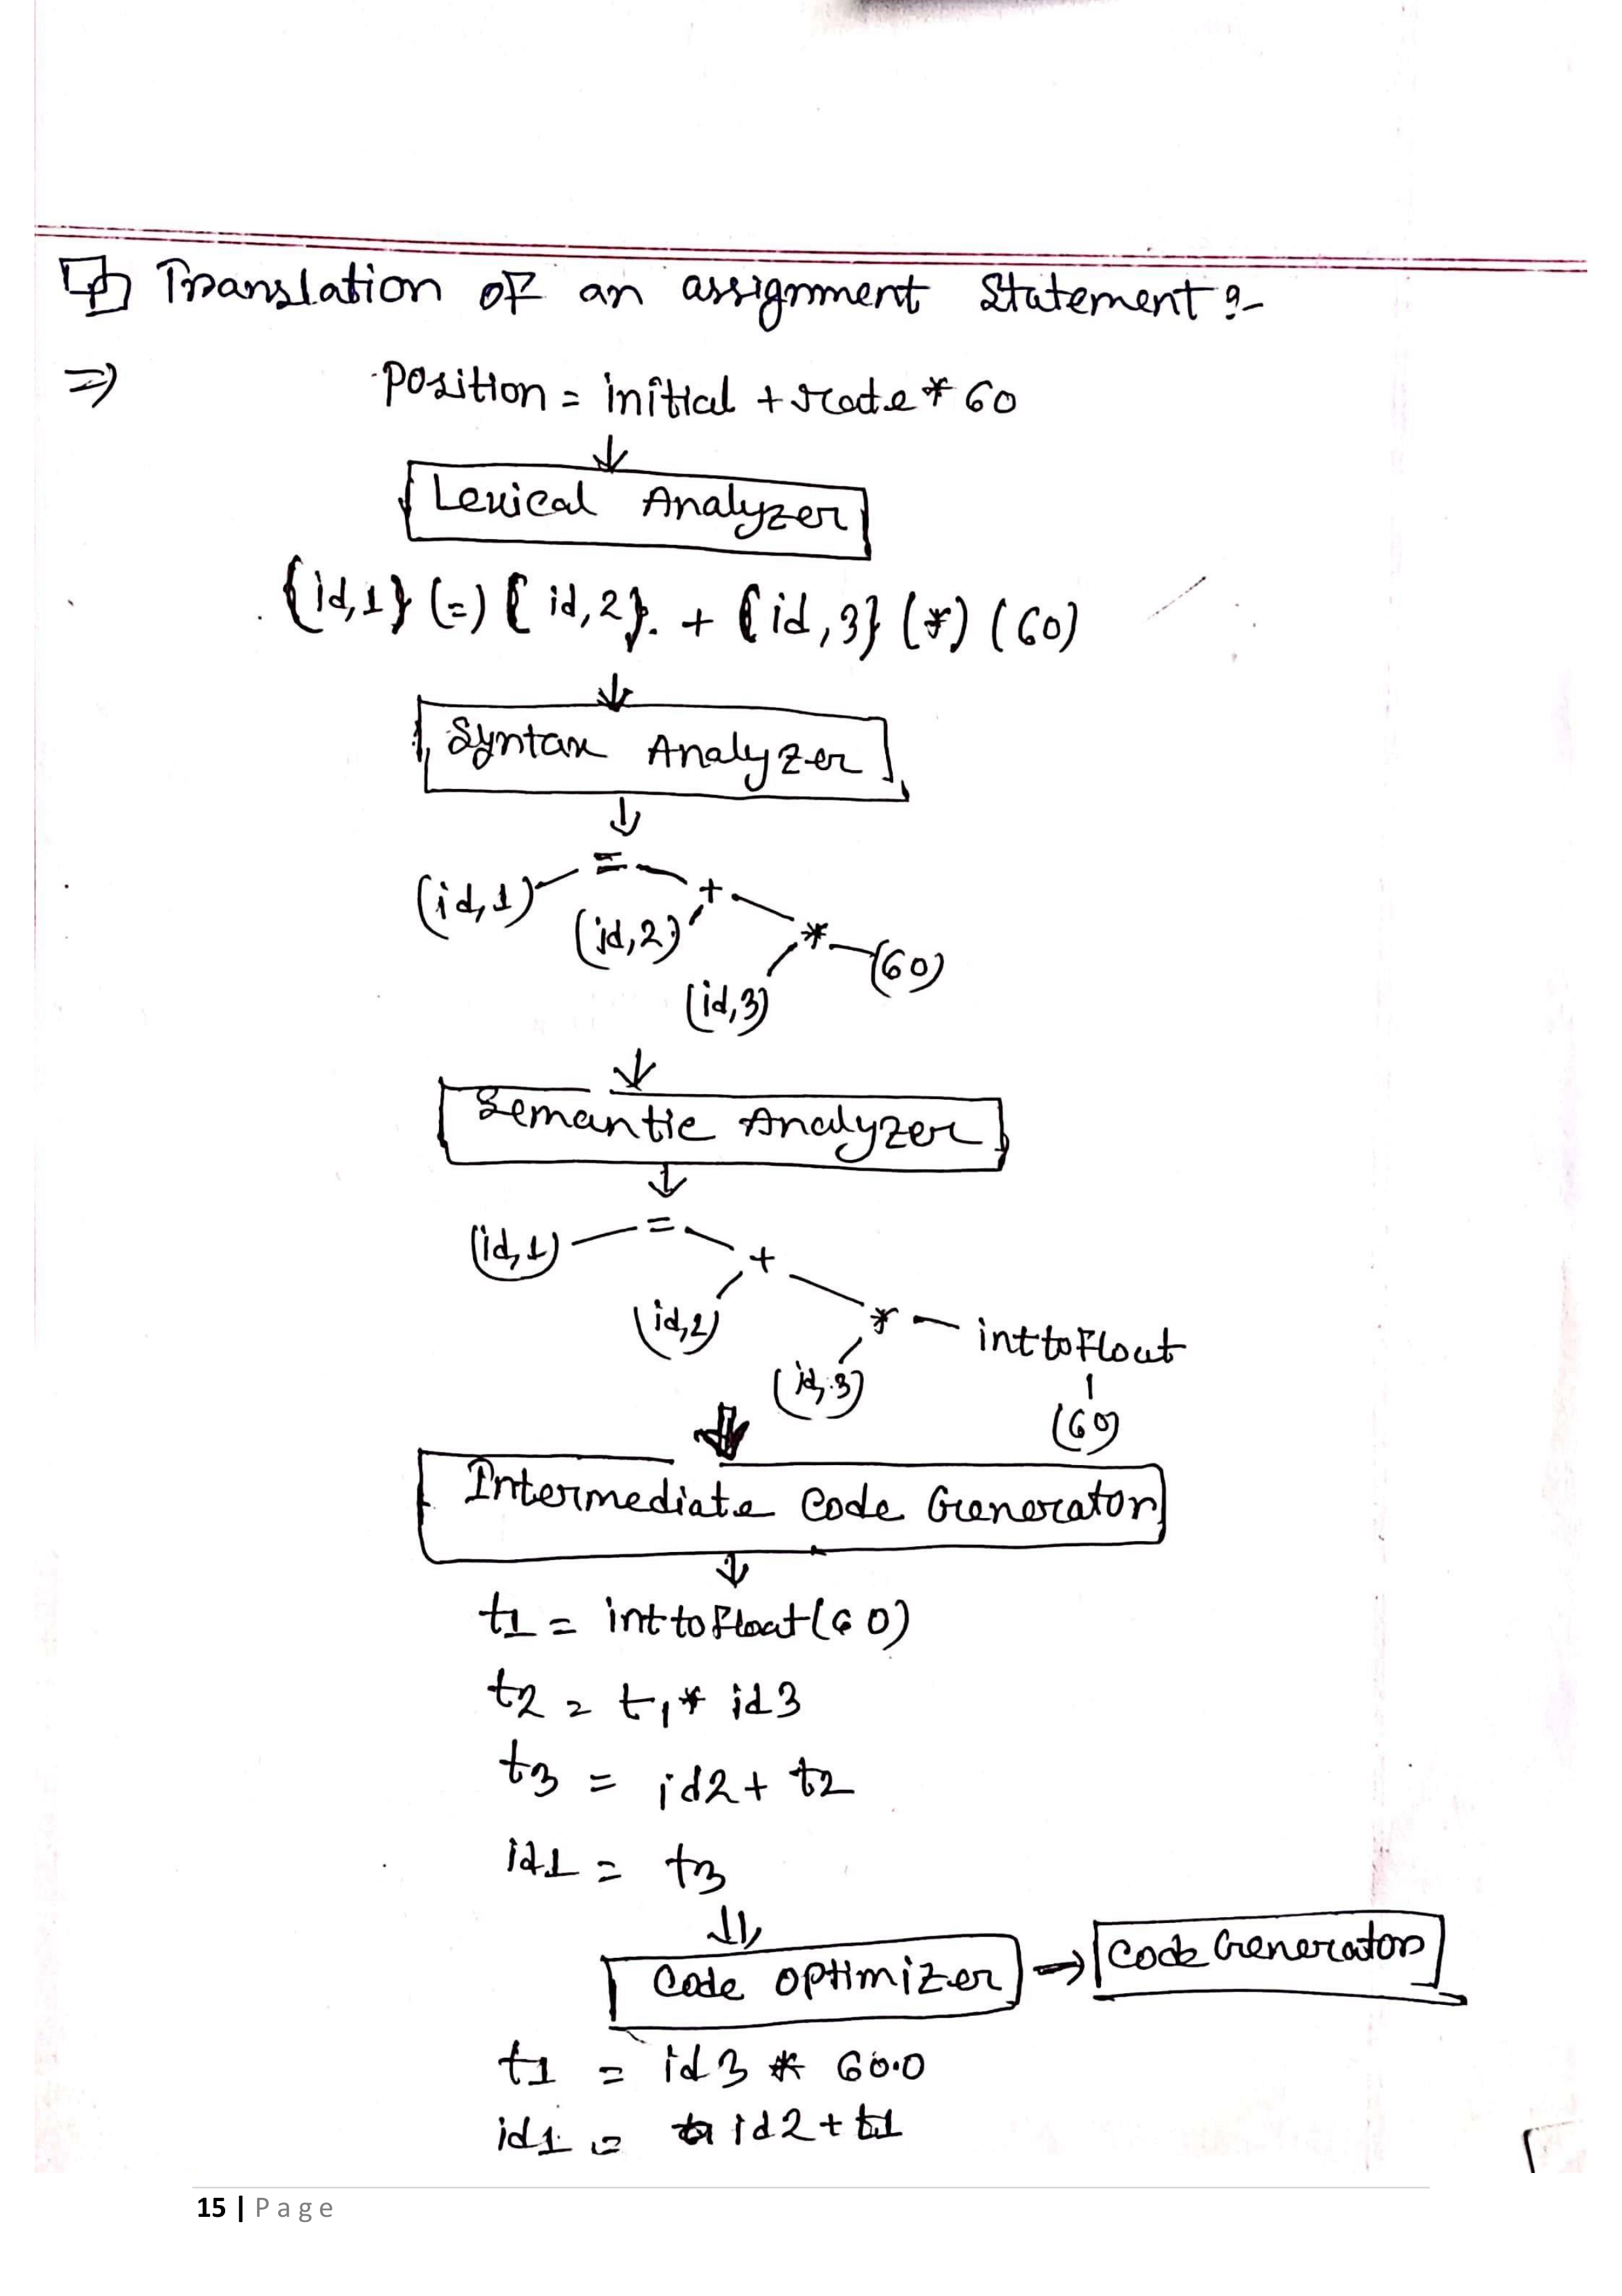 Translation of an assignment Statement :-
⇒ Position = initial + rate * 60
↓
Lexical Analyzer
{id,1} (=) {id,2} + {id,3} (*) (60)
↓
Syntax Analyzer
↓
=
(id,1) +
(id,2) *
(id,3) (60)
↓
Semantic Analyzer
↓
(id,1) =
+
(id,2) * inttofloat
(id,3) (60)
⇓
Intermediate Code Generator
↓
t1 = inttofloat(60)
t2 = t1 * id3
t3 = id2 + t2
id1 = t3
⇓
Code Optimizer → Code Generator
t1 = id3 * 60.0
id1 = id2 + t1
15 | Page